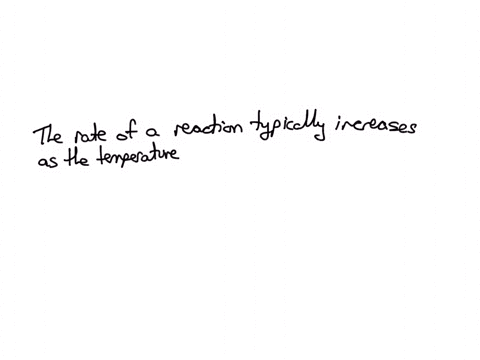 The rate of a reaction typically increases
as the temperature